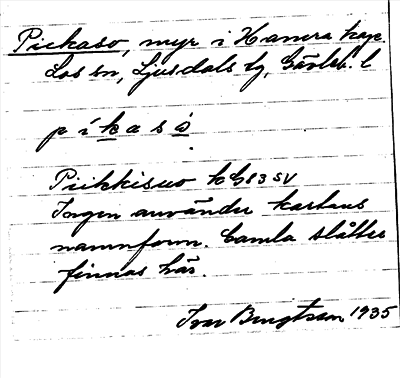 Pickaso, myr i Hamra kap.
Los sn, Ljusdals tg, Gävleb. l
p í k a s ò
Piikkisuo kG13SV
Ingen använder kartans
namnform. Gamla slåtter
finnas här.
Ivar Bengtsson 1935